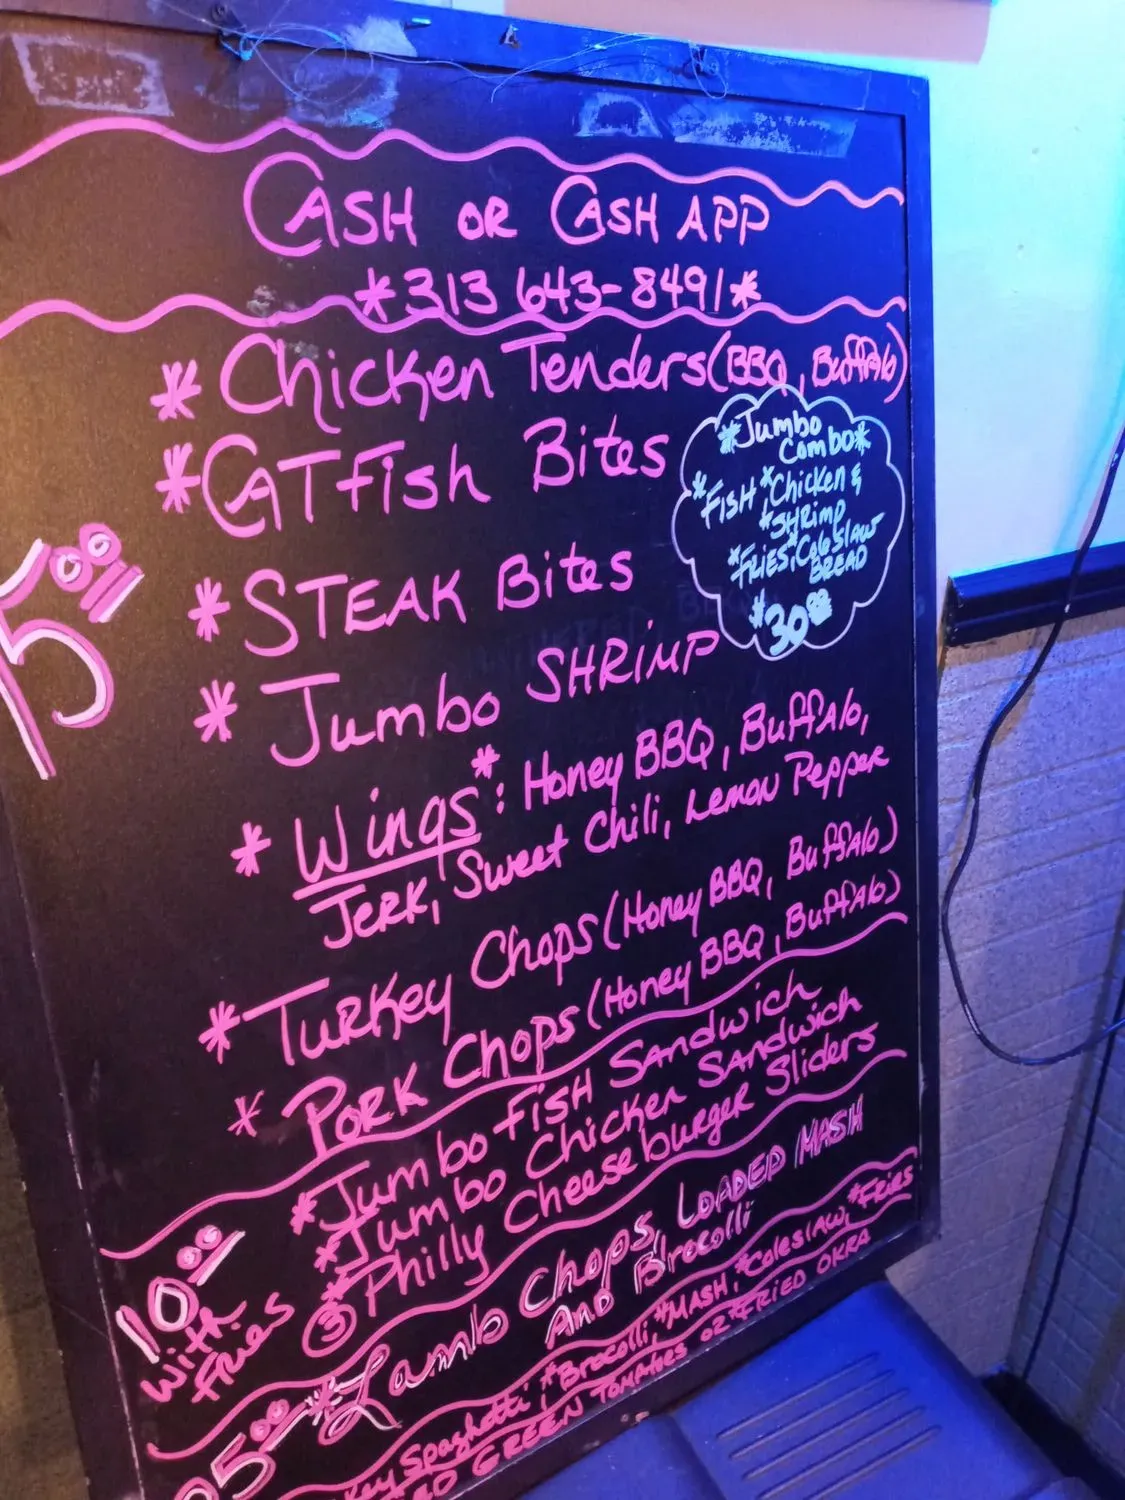 CASH OR CASH APP
*313 643-8491*
*Chicken Tenders (BBQ, Buffalo)
*CATFish Bites
*Jumbo Combo*
*FISH *Chicken &
*SHRimp
*FRIES *Coleslaw
BREAD
$30.00
5.00
*STEAK Bites
*Jumbo SHRIMP
*Wings*: Honey BBQ, Buffalo,
JERK, Sweet Chili, Lemon Pepper
*TURKey Chops (Honey BBQ, Buffalo)
*PORK Chops (Honey BBQ, Buffalo)
10.00 with FRIES
*Jumbo FISH SANdwich
*Jumbo Chicken SANdwich
*③Philly Cheeseburger Sliders
5.00 *Lamb Chops, LOADED MASH
AND Brocolli
key Spaghetti, *Brocolli, *MASH, *Coleslaw, *FRies
ED GREEN TOMATOES OR *FRIED OKRA